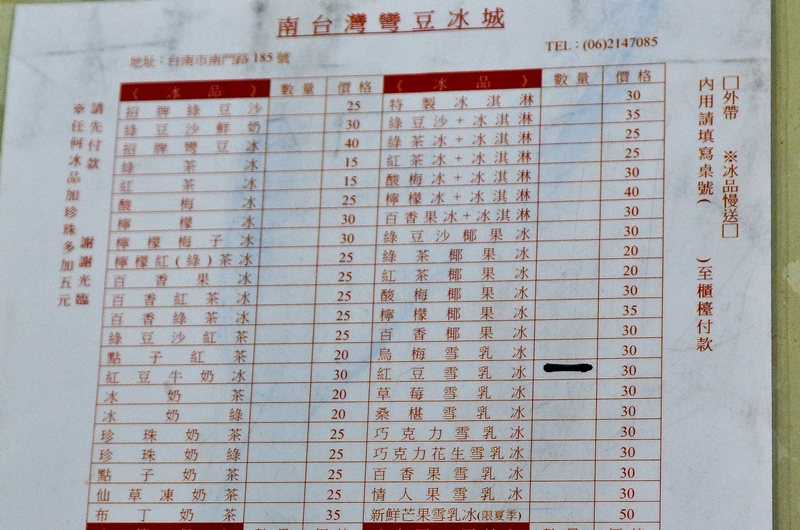 南台灣彎豆冰城
地址：台南市南門路185號
TEL：(06)2147085
《 冰品 》 數量 價格 《 冰品 》 數量 價格
招牌綠豆沙 25 特製冰淇淋 30
綠豆沙鮮奶 30 綠豆沙+冰淇淋 35
招牌彎豆冰 40 綠茶冰+冰淇淋 25
綠茶冰 15 紅茶冰+冰淇淋 25
紅茶冰 15 酸梅冰+冰淇淋 30
酸梅冰 25 檸檬冰+冰淇淋 40
檸檬冰 30 百香果冰+冰淇淋 30
檸檬梅子冰 30 綠豆沙椰果冰 30
檸檬紅(綠)茶冰 25 綠茶椰果冰 20
百香果冰 25 紅茶椰果冰 20
百香紅茶冰 25 酸梅椰果冰 30
百香綠茶冰 25 檸檬椰果冰 35
綠豆沙紅茶 25 百香椰果冰 30
點子紅茶 20 烏梅雪乳冰 30
紅豆牛奶冰 30 紅豆雪乳冰 30
冰奶茶 20 草莓雪乳冰 30
冰奶綠 20 桑椹雪乳冰 30
珍珠奶茶 25 巧克力雪乳冰 30
珍珠奶綠 25 巧克力花生雪乳冰 30
點子奶茶 25 百香果雪乳冰 30
仙草凍奶茶 25 情人果雪乳冰 30
布丁奶茶 35 新鮮芒果雪乳冰(限夏季) 50
請先付款 謝謝光臨
※任何冰品加珍珠多加五元
□外帶 ※冰品慢送□
內用請填寫桌號( )至櫃檯付款